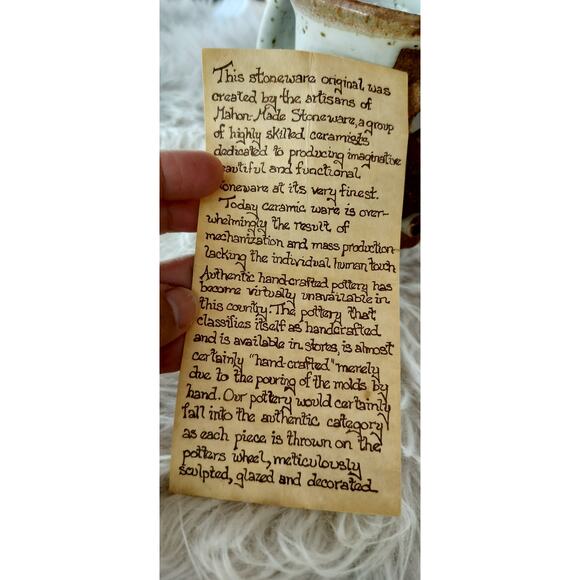 This stoneware original, was
created by the artisans of
Mahon-Made Stoneware, a group
of highly skilled ceramists
dedicated to producing imaginative
eautiful and functional
toneware at its very finest.
Today ceramic ware is over-
whelmingly the result of
mechanization and mass production-
lacking the individual human touch
Authentic hand-crafted pottery has
become virtually unavailable in
this country. The pottery that
classifies itself as handcrafted
and is available in stores, is almost
certainly "hand-crafted" merely
due to the pouring of the molds by
hand. Our pottery would certainly
fall into the authentic category
as each piece is thrown on the
potters wheel, meticulously
sculpted, glazed and decorated